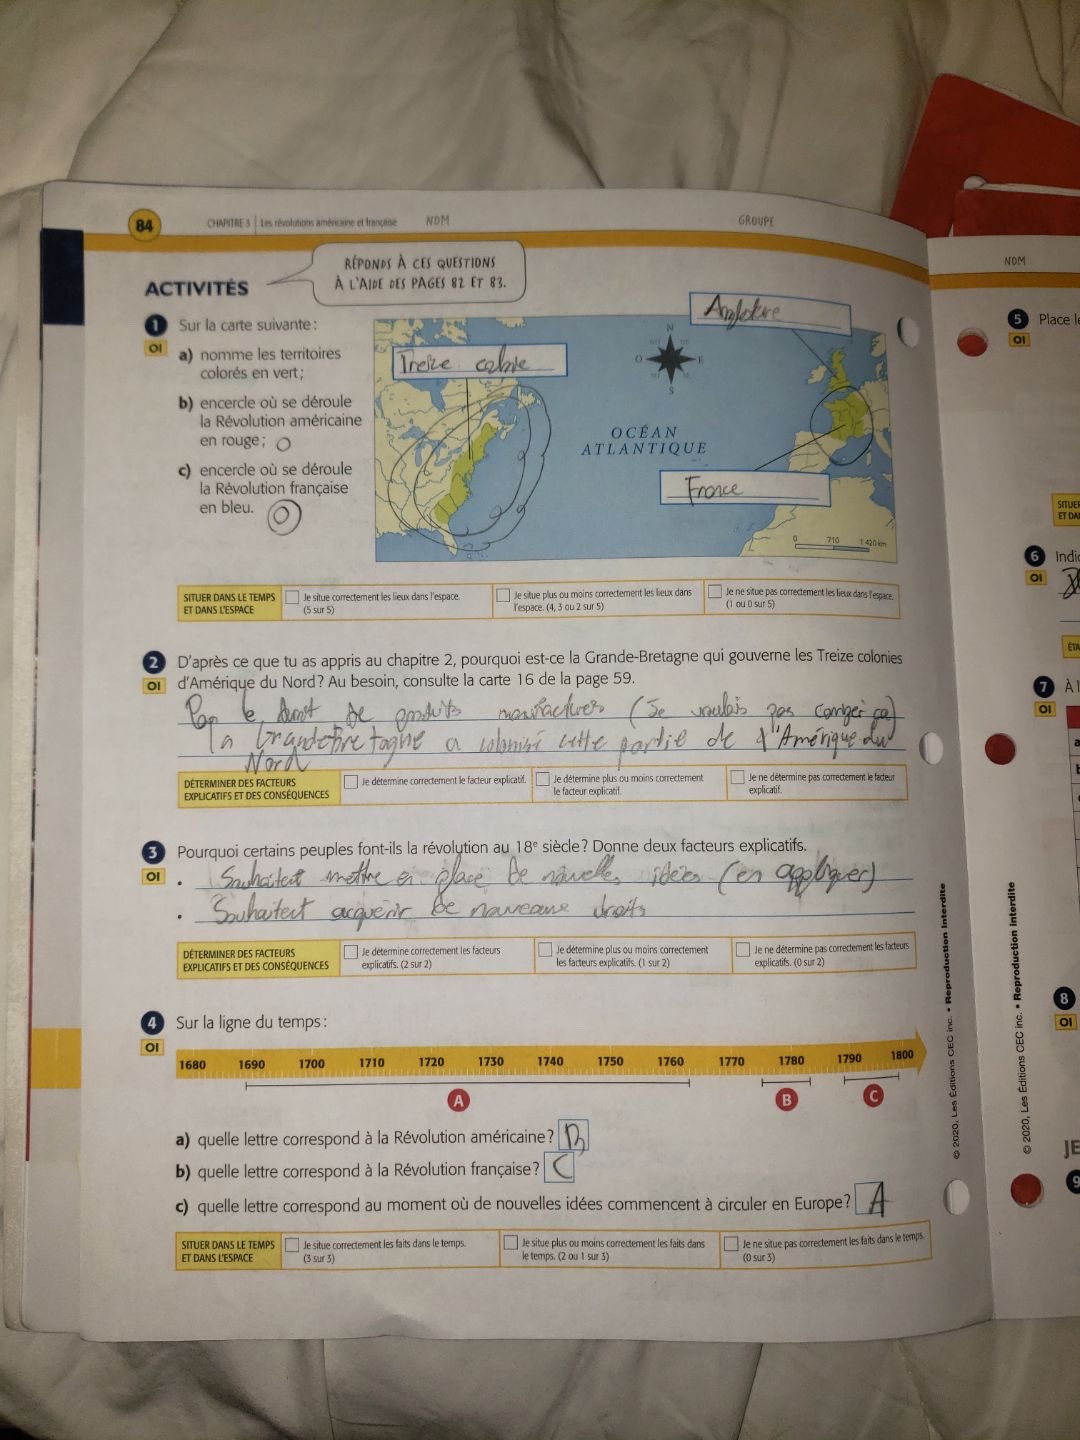 84
CHAPITRE 3 | Les révolutions américaine et française
NOM
GROUPE
ACTIVITÉS
RÉPONDS À CES QUESTIONS
À L'AIDE DES PAGES 82 ET 83.
1 Sur la carte suivante :
OI
a) nomme les territoires
colorés en vert;
b) encercle où se déroule
la Révolution américaine
en rouge;
c) encercle où se déroule
la Révolution française
en bleu.
Treize colonie
N
O
E
S
OCÉAN
ATLANTIQUE
France
0 710 1 420 km
SITUER DANS LE TEMPS
ET DANS L'ESPACE
Je situe correctement les lieux dans l'espace.
(5 sur 5)
Je situe plus ou moins correctement les lieux dans
l'espace. (4, 3 ou 2 sur 5)
Je ne situe pas correctement les lieux dans l'espace.
(1 ou 0 sur 5)
2 D'après ce que tu as appris au chapitre 2, pourquoi est-ce la Grande-Bretagne qui gouverne les Treize colonies
OI d'Amérique du Nord? Au besoin, consulte la carte 16 de la page 59.
de produits manufacturers (Je voulais pas corriger ça)
la Grandebretagne a colonisé cette partie de l'Amérique du
Nord
DÉTERMINER DES FACTEURS
EXPLICATIFS ET DES CONSÉQUENCES
Je détermine correctement le facteur explicatif.
Je détermine plus ou moins correctement
le facteur explicatif.
Je ne détermine pas correctement le facteur
explicatif.
3 Pourquoi certains peuples font-ils la révolution au 18e siècle? Donne deux facteurs explicatifs.
OI
• Souhaitent mettre en place de nouvelles idées (en appliquer)
• Souhaitent acquérir de nouveaux droits
DÉTERMINER DES FACTEURS
EXPLICATIFS ET DES CONSÉQUENCES
Je détermine correctement les facteurs
explicatifs. (2 sur 2)
Je détermine plus ou moins correctement
les facteurs explicatifs. (1 sur 2)
Je ne détermine pas correctement les facteurs
explicatifs. (0 sur 2)
4 Sur la ligne du temps :
OI
1680 1690 1700 1710 1720 1730 1740 1750 1760 1770 1780 1790 1800
A B C
a) quelle lettre correspond à la Révolution américaine? B
b) quelle lettre correspond à la Révolution française? C
c) quelle lettre correspond au moment où de nouvelles idées commencent à circuler en Europe? A
SITUER DANS LE TEMPS
ET DANS L'ESPACE
Je situe correctement les faits dans le temps.
(3 sur 3)
Je situe plus ou moins correctement les faits dans
le temps. (2 ou 1 sur 3)
Je ne situe pas correctement les faits dans le temps.
(0 sur 3)
© 2020, Les Éditions CEC inc. • Reproduction interdite
NOM
5 Place
OI
SITUER
6
OI
7 À
OI
8
OI
9
© 2020, Les Éditions CEC inc. • Reproduction interdite